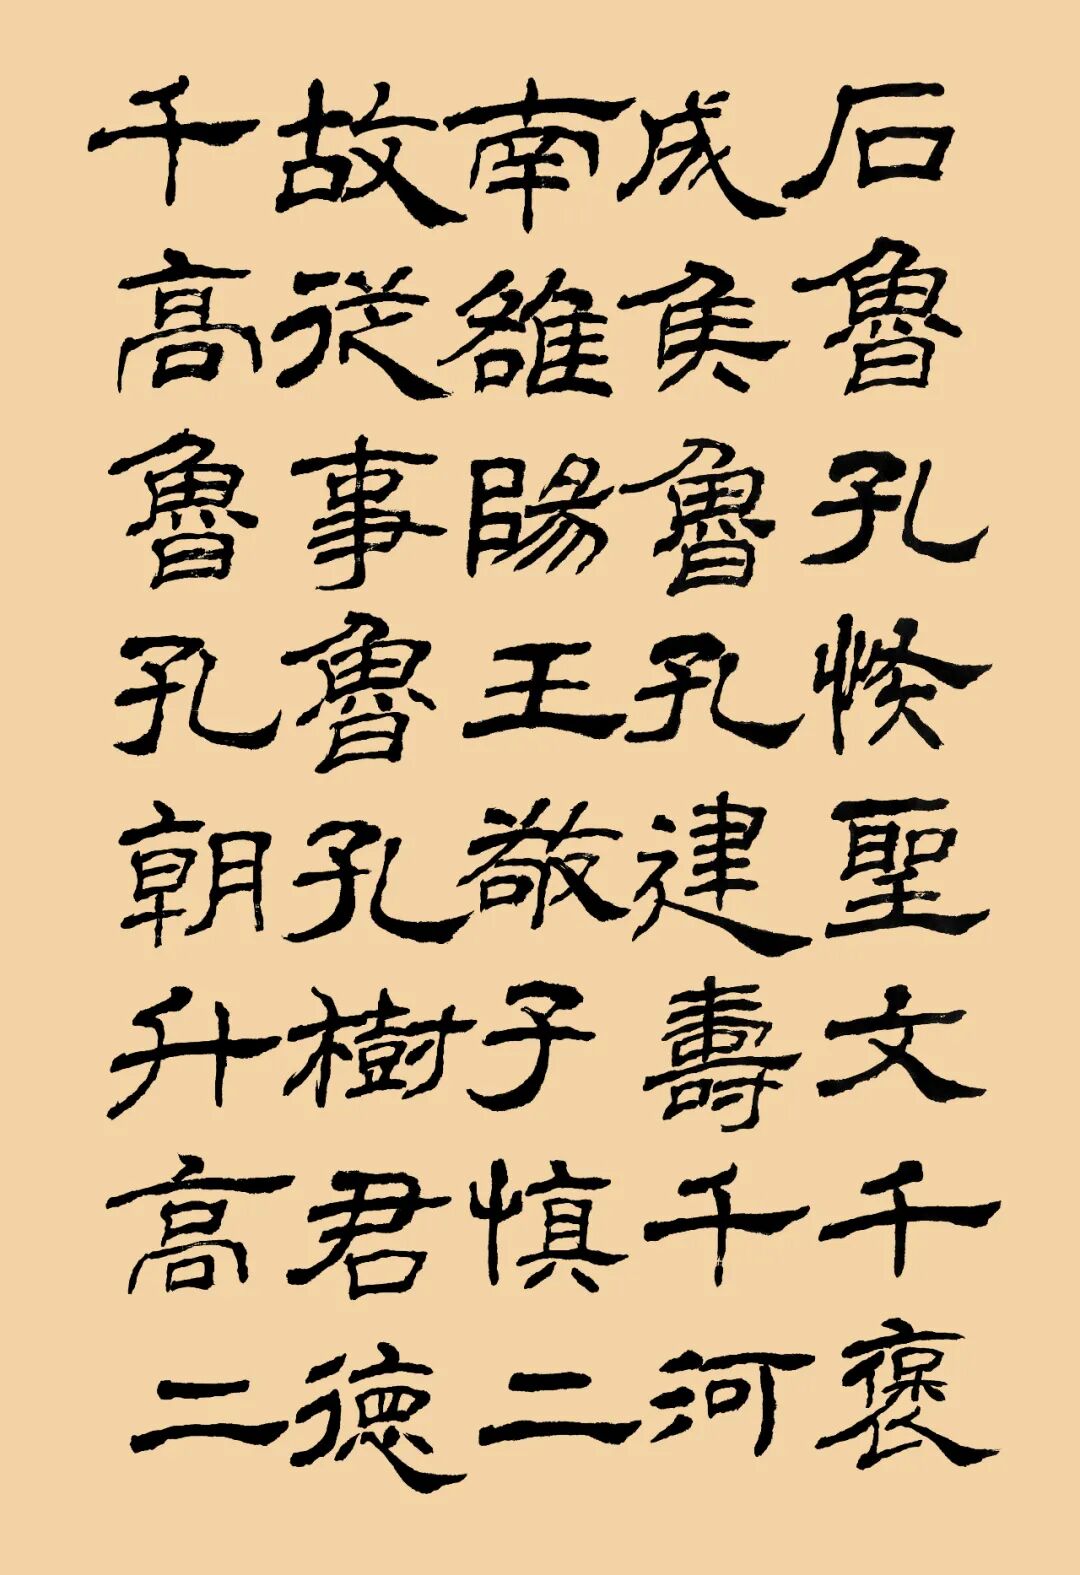 石魯孔惔聖文千褒
成矦魯孔建壽千河
南雒陽王敬子慎二
故從事魯孔樹君德
千高魯孔朝升高二